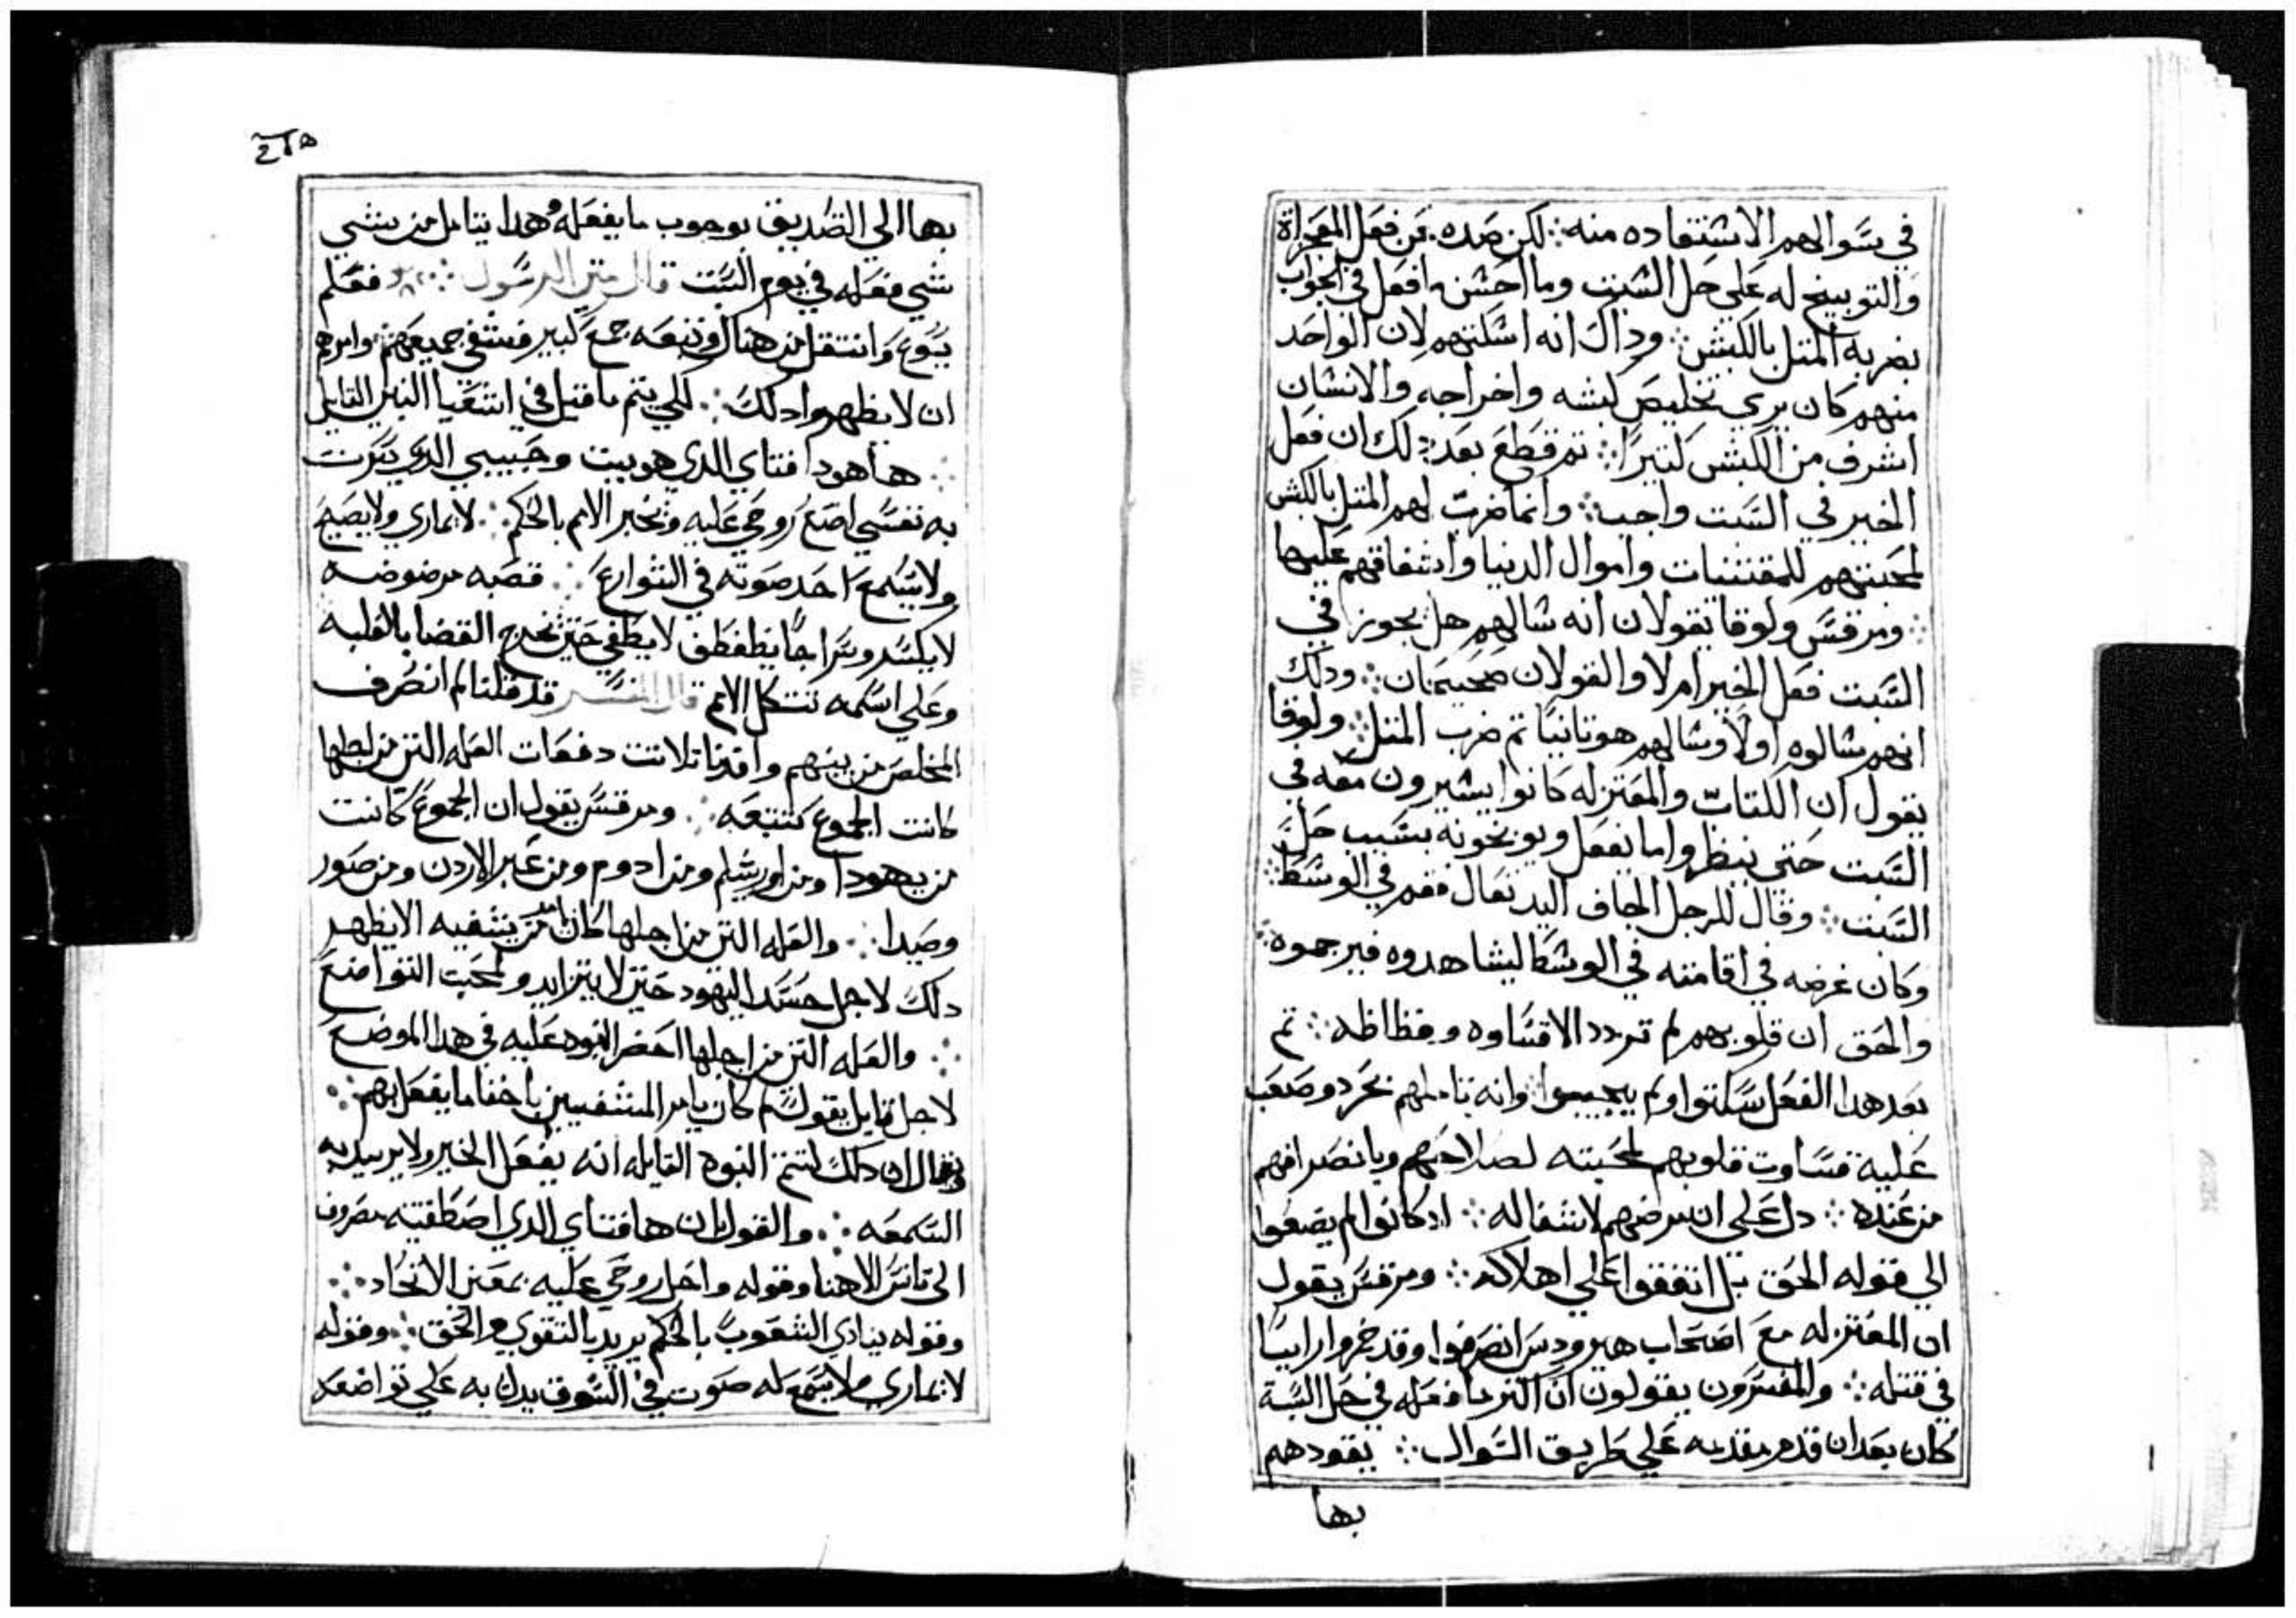 في سوالهم الاستفاده منه ܀ لكن صده عن فعل المعجزاة
والتوبيخ له علي حل السبت وما احسن ما فعل في الجواب
بضربه المتل بالكبش ܀ وداك انه اسكتهم لان الواحد
منهم كان يري تخليص كبشه واخراجه والانسان
اشرف من الكبش كتيرًا ܀ تم قطع بعد دلك ان فعل
الخير في السبت واجب ܀ وانما ضرب لهم المتل بالكبش
لمحبتهم للمقتنيات واموال الدنيا واشفاقهم عليها
܀ ومرقس ولوقا يقولان انه سالهم هل يجوز في
السبت فعل الخير ام لا والقولان صحيحان ܀ ودلك
انهم سالوه اولًا وسالهم هو تانيًا تم ضرب المتل ܀ ولوقا
يقول ان الكتاب والمعتزله كانوا يشيرون معه في
السبت حتي ينظروا ما يفعل ويوبخونه بسبب حل
السبت ܀ وقال للرجل الجاف اليد تعال فقم في الوسط ܀
وكان غرضه في اقامته في الوسط ليشاهدوه فيرحموه ܀
والحق ان قلوبهم لم تردد الا قساوه وفظاظه ܀ تم
بعد هدا الفعل سكتوا ولم يجيبوا وانه تاملهم بحرد وصعب
عليه قساوت قلوبهم لمحبته لصلاحهم وبانصرافهم
من عنده ܀ دل علي ان مرضهم لا شفا له ܀ اد كانوا لم يصغوا
الي قوله الحق بل اتفقوا علي اهلاكه ܀ ومرقس يقول
ان المعتزله مع اصحاب هيرودس انصرفوا وقد خمروا راييًا
في قتله ܀ والمفسرون يقولون ان اكتر ما فعله في حل السبة
كان بعد ان قدم مقدمه علي طريق السوال ܀ يقودهم
بها
بها الي التصديق بوجوب ما يفعله وهدا يتامل من شي
شي فعله في يوم السبت قال متي الرسول ܀ فعلم
يسوع وانتقل من هناك وتبعه جمع كبير فشفي جميعهم وامرهم
ان لا يظهروا دلك ܀ لكي يتم ما قيل في اشعيا النبي القايل
܀ ها هودا فتاي الدي هويت وحبيبي الدي سرت
به نفسي اضع روحي عليه ويخبر الامم بالحكم ܀ لا يماري ولا يصيح
ولا يسمع احد صوته في الشوارع ܀ قصبه مرضوضه
لا يكسر وسراجًا يطفطف لا يطفي حتي يخرج القضا بالغلبه
وعلي اسمه تتكل الامم قال المفسر قد قلنا لم انصرف
المخلص من بينهم واقدنا تلاتت دفعات العله التي من اجلها
كانت الجموع تتبعه ܀ ومرقس يقول ان الجموع كانت
من يهودا ومن اورشلم ومن ادوم ومن عبر الاردن ومن صور
وصيدا ܀ والعله التي من اجلها كان يامر من يشفيه الا يظهر
دلك لاجل حسد اليهود حتي لا يتزايد ولمحبت التواضع
܀ والعله التي من اجلها احضر النبوه عليه في هدا الموضع
لاجل قايل يقول لم كان يامر المشفيين باخفا ما يفعل بهم ܀
وقال ان دلك لتتم النبوة القايله انه يفعل الخير ولا يريد به
السمعه ܀ والقول بان ها فتاي الدي اصطفيته مصروف
الي تانس الاهنا وقوله واحل روحي عليه بمعني الاتحاد ܀
وقوله ينادي الشعوب بالحكم يريد بالتقوي والحق ܀ وقوله
لا يماري ولا يسمع له صوت في السوق يدل به علي تواضعه